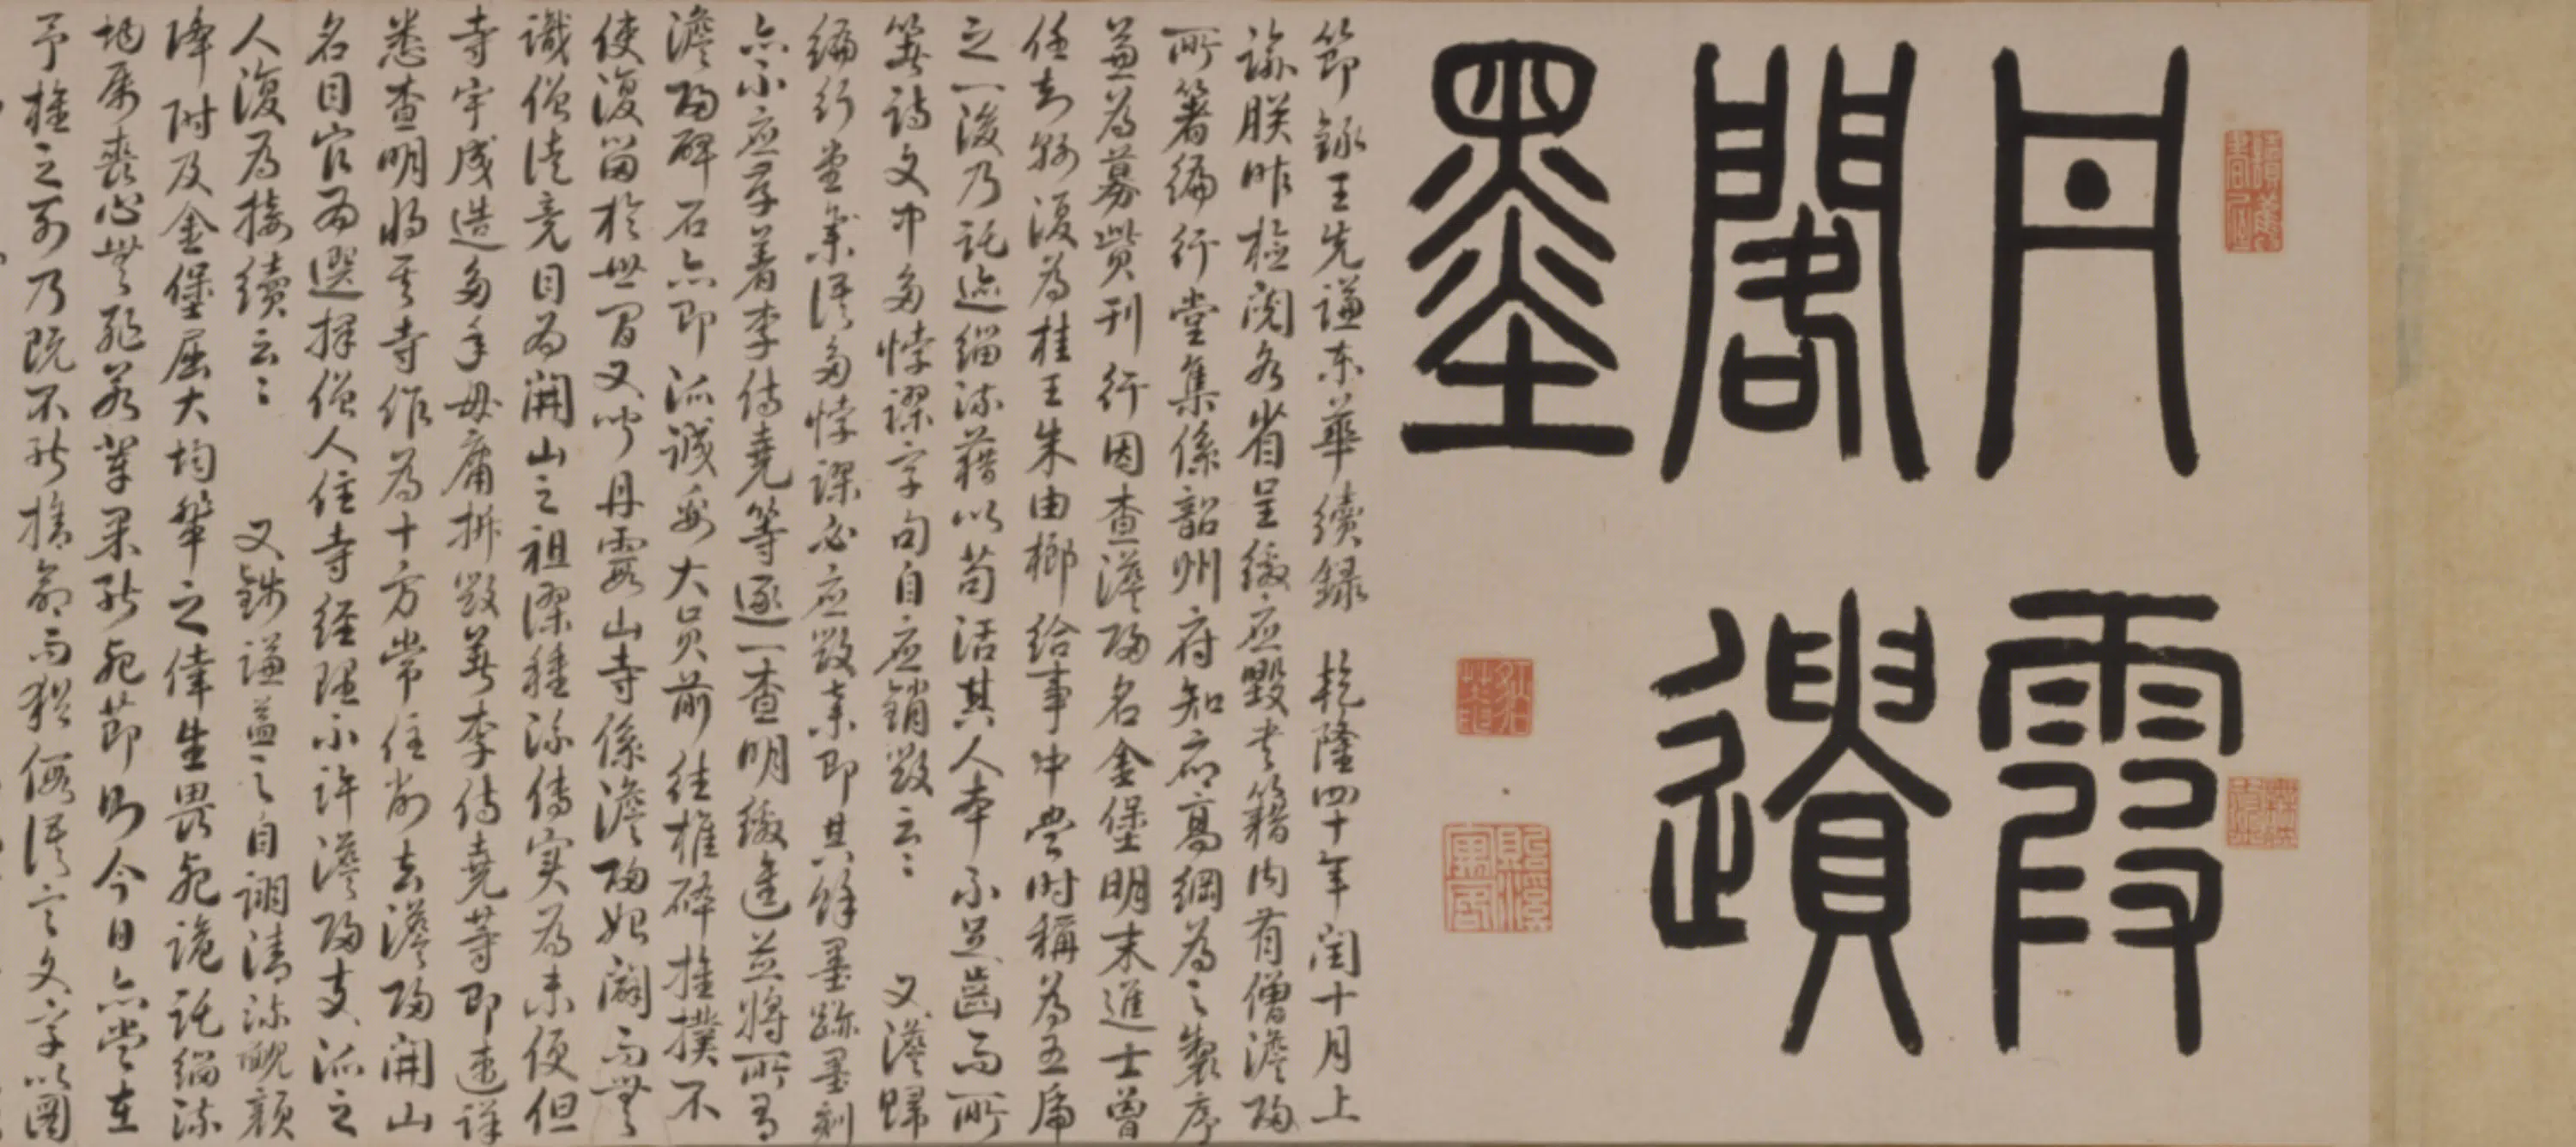 丹霞
閣遺
墨
節錄王先謙東華續錄 乾隆四十年閏十月上
諭朕昨檢閱各省呈繳應毀書籍內有僧澹歸
所著徧行堂集係韶州府知府高綱為之製序
兼為募貲刊行因查澹歸名金堡明末進士曾
任知縣復為桂王朱由榔給事中當時稱為五虎
之一後乃託迹緇流藉以苟活其人本不足齒而所
著詩文中多悖謬字句自應銷毀云云 又澹歸
徧行堂集語多悖謬必應毀棄即其餘墨跡墨刻
亦不應存着李侍堯等逐一查明繳進並將所有
澹歸碑石亦即派誠妥大員前往椎碎推撲不
使復留於世間又聞丹霞山寺係澹歸始闢而無
識僧徒竟目為開山之祖謬種流傳實為未便但
寺宇成造多年毋庸拆毀著李侍堯等即速詳
悉查明將其寺作為十方常住削去澹歸開山
名目官為選擇僧人住寺經理不許澹歸支派之
人復為接續云云 又錢謙益之自詡清流靦顏
降附及金堡屈大均輩之倖生畏死詭託緇流
均屬喪心無恥若輩果能死節則今日亦當在
予旌之列乃既不能捨命而猶假語言文字以圖